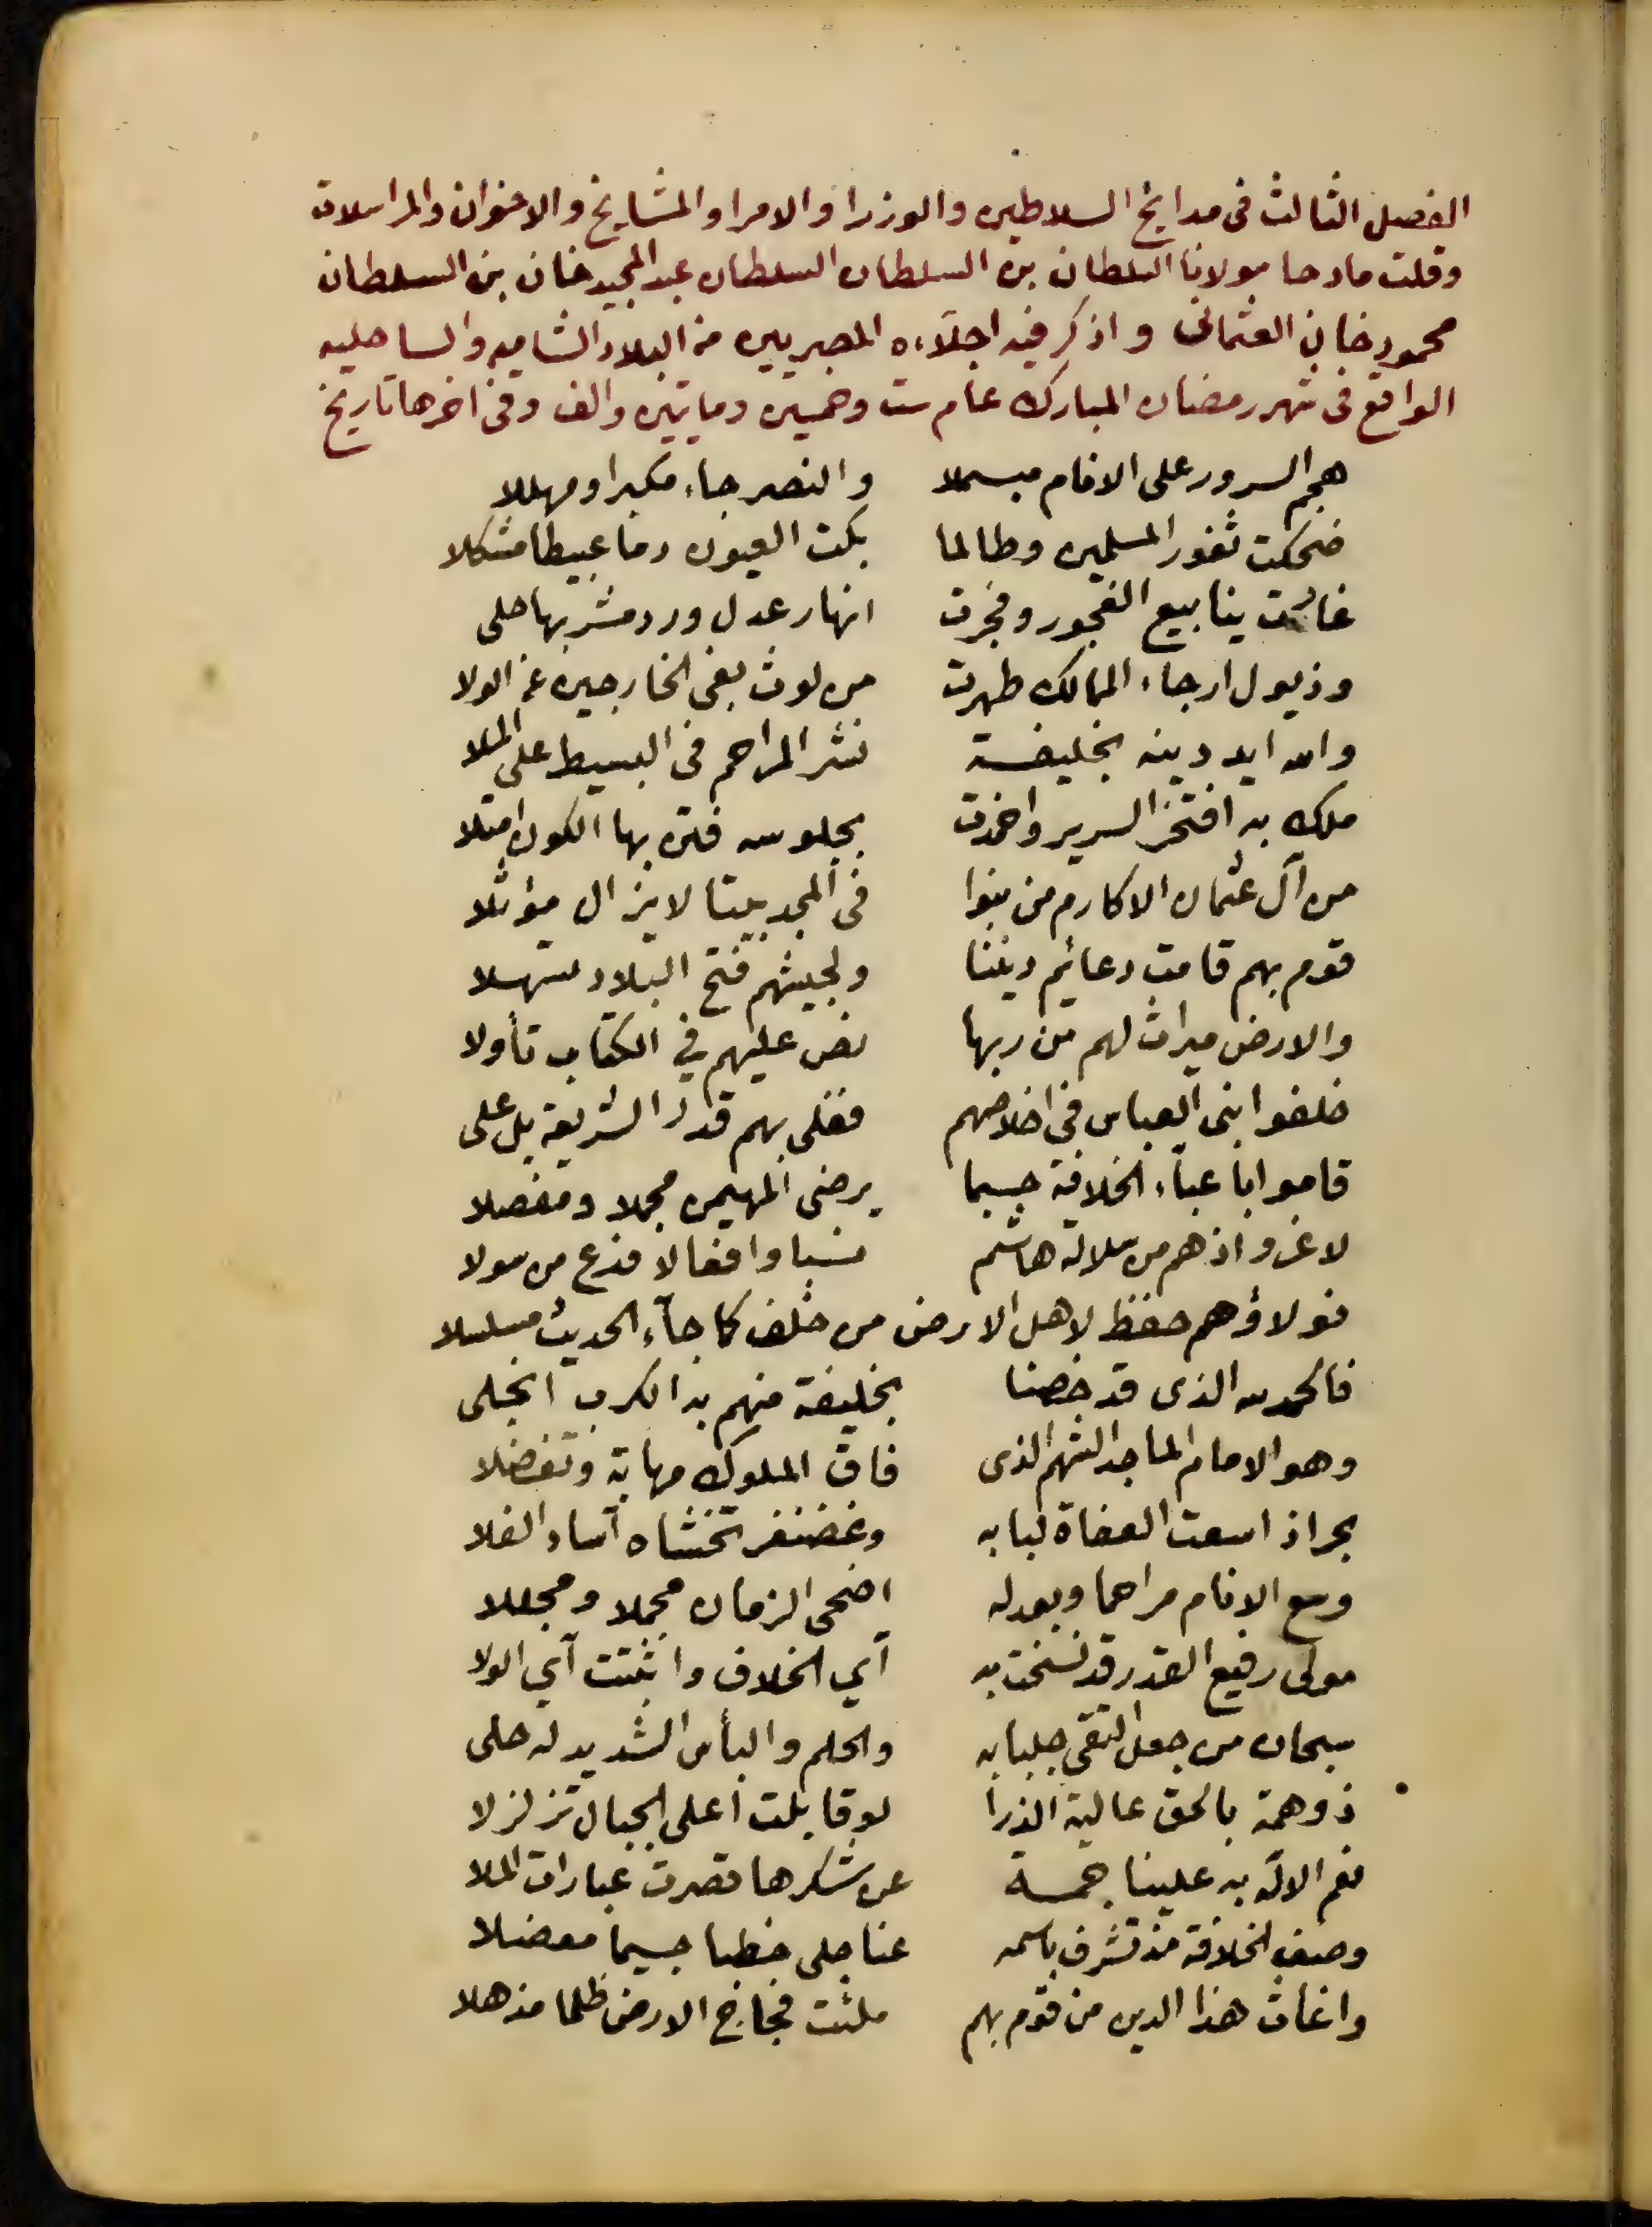 الفصل الثالث فى مدايح السلاطين والوزرا والامرا والمشايخ والاخوان والمراسلات
وقلت مادحا مولانا السلطان بن السلطان السلطان عبد المجيد خان بن السلطان
محمود خان العثمانى واذكر فيه اجلاءه المصريين من البلاد الشاميه والساحليه
الواقع فى شهر رمضان المبارك عام ست وخمسين ومايتين والف وفى اخرها تاريخ
هجم السرور على الانام مبسملا والنصر جاء مكبرا ومهللا
ضحكت ثغور المسلمين وطالما بكت العيون دما عبيطا مشكلا
غارت ينابيع الفجور وفجرت انهار عدل ورد مشربها حلى
وذيول ارجاء الممالك طهرت من لوث بغى الخارجين عن الولا
والله ايد دينه بخليفة نشر المراحم فى البسيط على الملا
ملك به افتخر السرير واخمدت بجلوسه فتن بها الكون امتلا
من آل عثمان الاكارم من بنوا فى المجد بيتا لا يزال مؤثلا
قوم بهم قامت دعائم ديننا ولجيشهم فتح البلاد تسهلا
والارض ميراث لهم من ربها نص عليهم في الكتاب تأولا
خلفوا بنى العباس فى اخلاصهم فغلى بهم قدر الشريعة بل على
قاموا باعباء الخلافة حسبما يرضى المهيمن مجملا ومفصلا
لا غرو اذ هم من سلالة هاشم نسبا وافعالا فدع من سولا
فولاؤهم حفظ لاهل الارض من خلف كما جآء الحديث مسلسلا
فالحمد لله الذى قد خصنا بخليفة منهم به الكرب انجلى
وهو الامام الماجد الشهم الذى فاق الملوك مهابة وتفضلا
بحر اذا سعت العفاة لبابه وغضنفر تخشاه آساد الفلا
وسع الانام مراحما وبعدله اضحى الزمان مجملا ومجللا
مولى رفيع القدر قد نسخت به آي الخلاف واثبتت آي الولا
سبحان من جعل التقى جلبابه والحلم والبأس الشديد له حلى
ذو همة بالحق عالية الذرا لو قابلت اعلى الجبال تزلزلا
نعم الاله به علينا جمة عن شكرها قصرت عبارات الملا
وصف الخلافة مذ تشرف باسمه عنا جلى خطبا جسيما معضلا
واغاث هذا الدين من قوم بهم ملئت فجاج الارض ظلما مذهلا